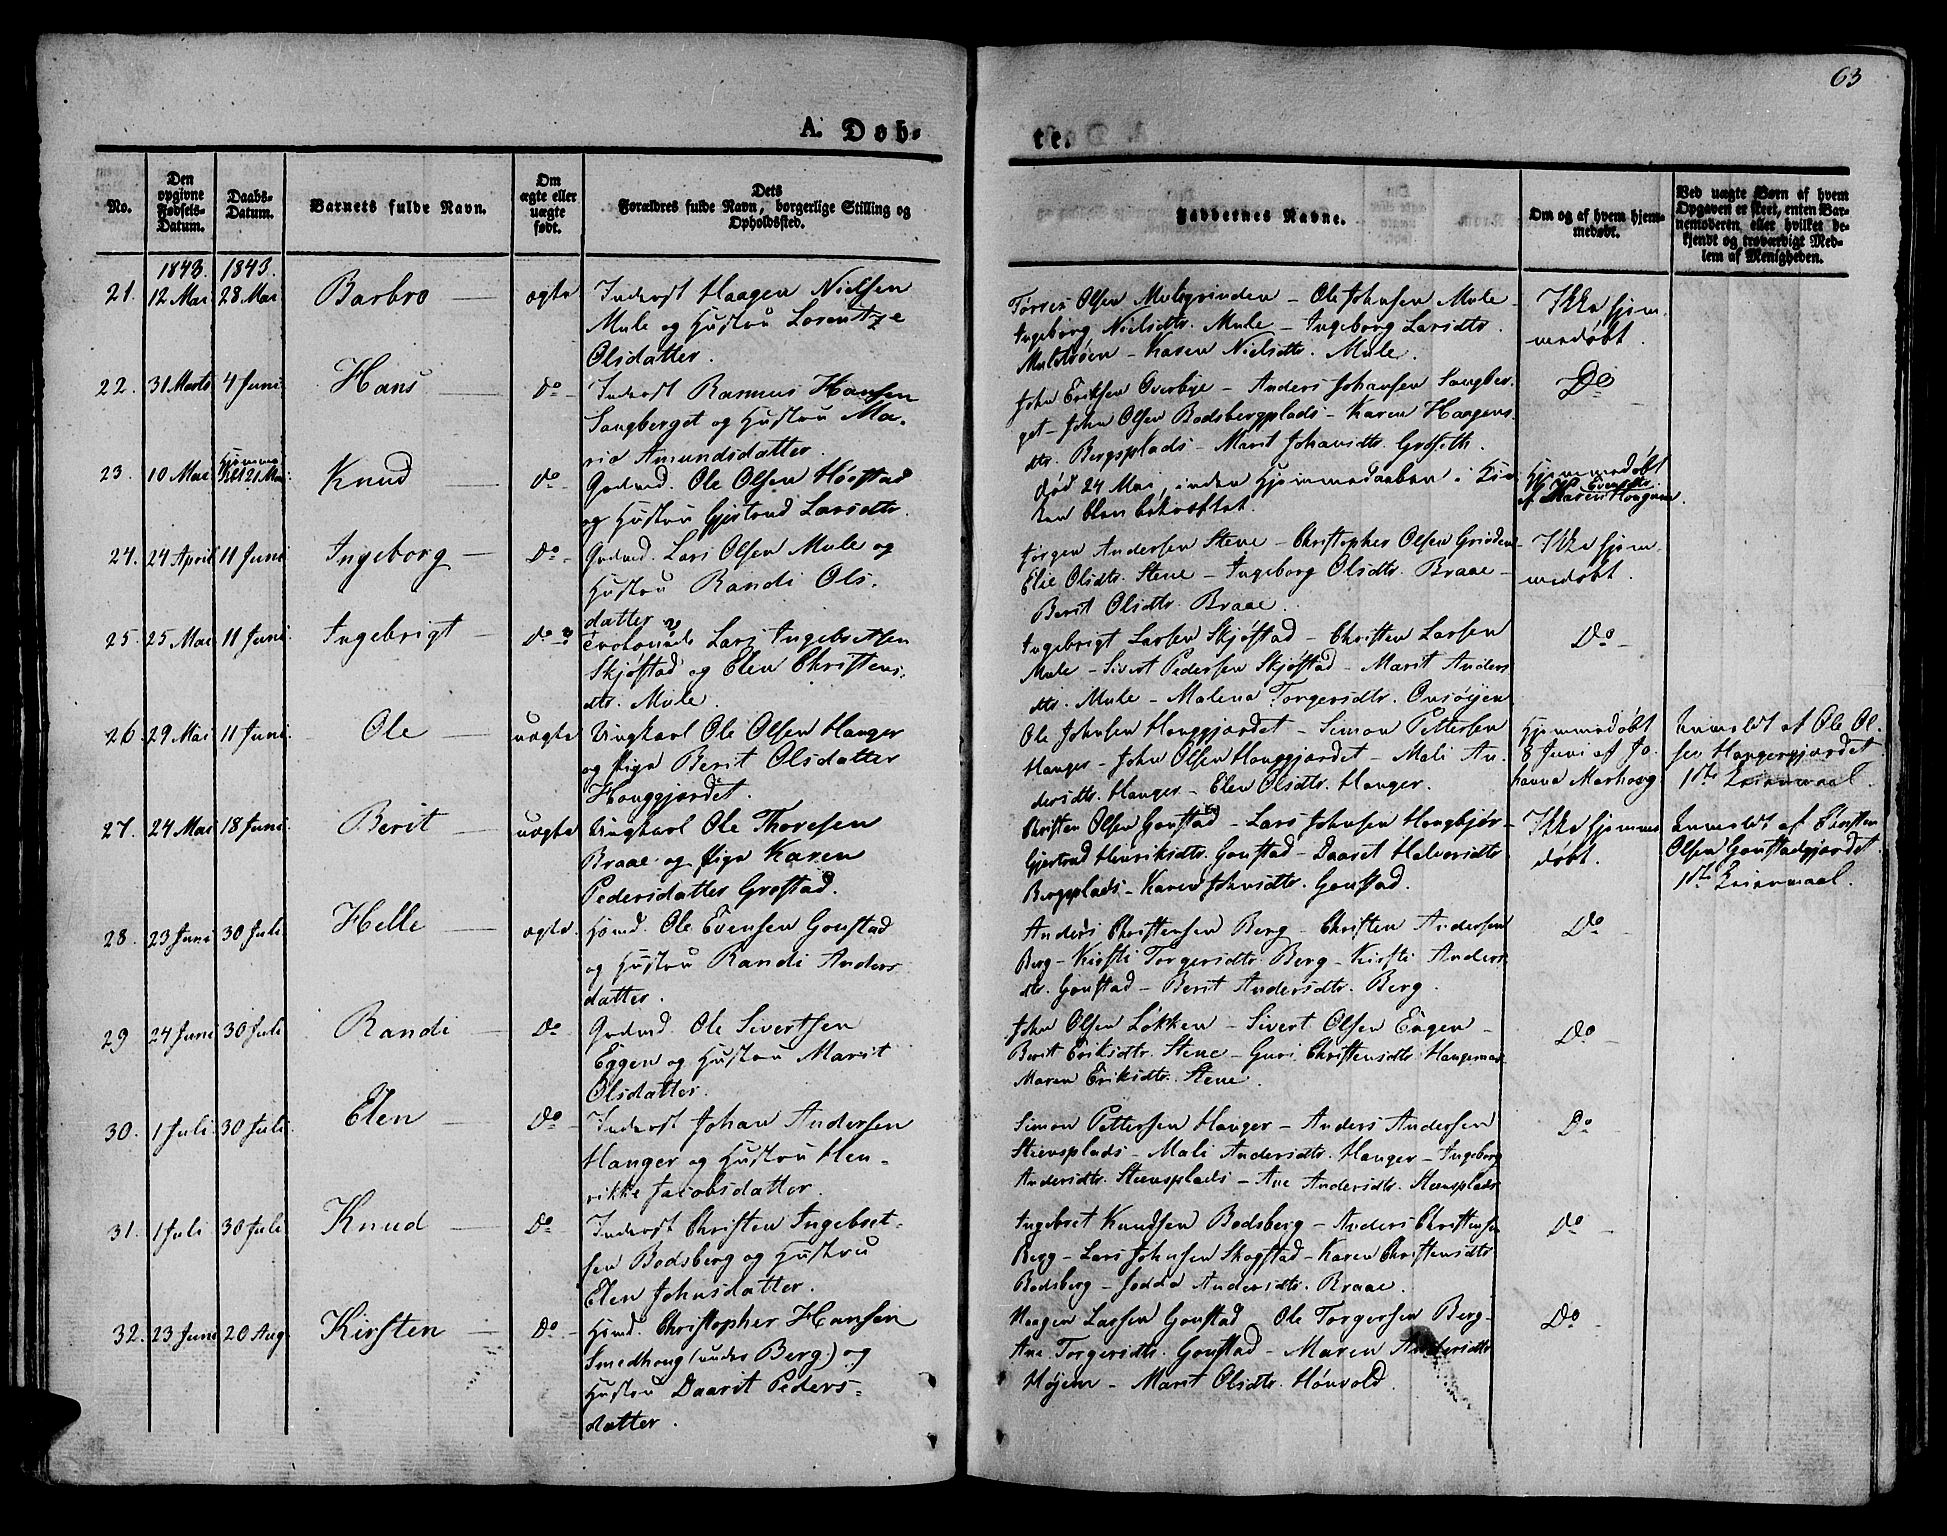 63
A. Døb-
te.
No.
Den opgivne Fødsels-Datum.
Daabs-Datum.
Barnets fulde Navn.
Om ægte eller uægte født.
Dets Forældres fulde Navn, borgerlige Stilling og Opholdssted.
Faddernes Navne.
Om og af hvem hjem-medøbt.
Ved uægte Børn af hvem Opgaven er skeet, enten Bar-nemoderen eller hvilket be-kjendt og troværdigt Med-lem af Menigheden.
1843. 1843.
21. 12 Mai 28 Mai Barbro ægte Inderst Haagen Nielsen
Mule og Hustru Lorentze
Olsdatter.
Tørres Olsen Mulegrinden - Ole Johnsen Mule -
Ingeborg Nielsdtr. Mule - Ingeborg Larsdtr.
Karen Nielsdtr. Mule.
Ikke hjem-
medøbt.
22. 31 Marts 4 Juni Hans Do Inderst Rasmus Hansen
Sangberget og Hustru Ma-
rie Amundsdatter.
John Eriksen Overbye - Anders Johansen Sangber-
get - John Olsen Bodsbergplads - Karen Haagens-
dtr. Bergsplads - Marit Johansdtr. Grøseth.
Do
23. 10 Mai 21 Mai Knud Do Gaardmd. Ole Olsen
og Hustru Gjertrud Larsdtr.
Død 24 Mai, inden Hjemmedaaben i Kir-
ken blev bekræftet.
Hjemmedøbt
24. 24 April 11 Juni Ingeborg Do Gaardmd. Lars Olsen Mule og
Hustru Randi Ols-
datter
Jørgen Andersen Stene - Christopher Olsen Grinden
Elie Olsdtr. Stene - Ingeborg Olsdtr. Braae -
Berit Olsdtr. Braae.
Ikke hjem-
medøbt.
25. 25 Mai 11 Juni Ingebrigt Do Lars Ingebretsen
Skjøstad og Elen Christens-
dtr. Mule.
Ingebrigt Larsen Skjøstad - Christen Larsen
Mule - Sivert Pedersen Skjøstad - Marit Anders
dtr. Mule - Malena Torgersdtr.
Do
26. 29 Mai 11 Juni Ole uægte Ungkarl Ole Olsen Hanger
og Pige Berit Olsdatter
Houggjærdet.
Ole Johnsen Houggjærdet - Simon Pettersen
Hanger - John Olsen Houggjærdet - Mali An-
dersdtr. Hanger - Elen Olsdtr. Hanger.
Hjemmedøbt
8 Juni af Jo-
hanna Marhoug
Anmeldt af Ole Ol-
sen
1ste Leiermaal.
27. 24 Mai 18 Juni Berit uægte Ungkarl Ole Thoresen
Braae og Pige Karen
Pedersdatter Grøstad.
Christen Olsen Goustad - Lars Johnsen
Gjertrud Henriksdtr. Goustad - Daaret Halvorsdtr.
Bergsplads - Karen Johnsdtr. Goustad.
Ikke hjemme-
døbt.
Anmeldt af Christen
Olsen Goustadgjærdet
1ste Leiermaal.
28. 23 Juni 30 Juli Helle ægte. Huusmd. Ole Evensen Goustad
og Hustru Randi Anders
datter.
Anders Christensen Berg - Christen Andersen
Berg - Kirsti Torgersdtr. Berg - Kirsti Anders
dtr. Goustad - Berit Andersdtr. Berg.
Do
29 24 Juni 30 Juli Randi Do Gaardmd. Ole Sivertsen
Eggen og Hustru Marit
Olsdatter.
John Olsen Løkken - Sivert Olsen Eggen -
Berit Eriksdtr. Stene - Guri Christensdtr.
Maren Eriksdtr. Stene.
Do
30. 1 Juli 30 Juli Elen Do Inderst Johan Andersen
Hanger og Hustru Hen-
rikke Jacobsdatter.
Simon Pettersen Hanger - Anders Andersen
Steensplads - Mali Andersdtr. Hanger - Ingeborg
Andersdtr. Steensplads - Ane Andersdtr. Steensplads
Do
31. 1 Juli 30 Juli Knud Do Inderst Christen Ingebret-
sen Bodsberg og Hustru
Elen Johnsdatter.
Ingebret Knudsen Bodsberg - Anders Christensen
Berg - Lars Johnsen Skogstad - Karen Christensdtr
Bodsberg - Andersdtr. Braae.
Do
32. 23 Juni 20 Aug. Kirsten Do Huusmd. Christopher Hansen
Smedhoug (under Berg) og
Hustru Daarit Peders-
datter.
Haagen Larsen Goustad Ole Torgersen Berg -
Ane Torgersdtr. Goustad - Maren Andersdtr
Højem - Marit Olsdtr.
Do